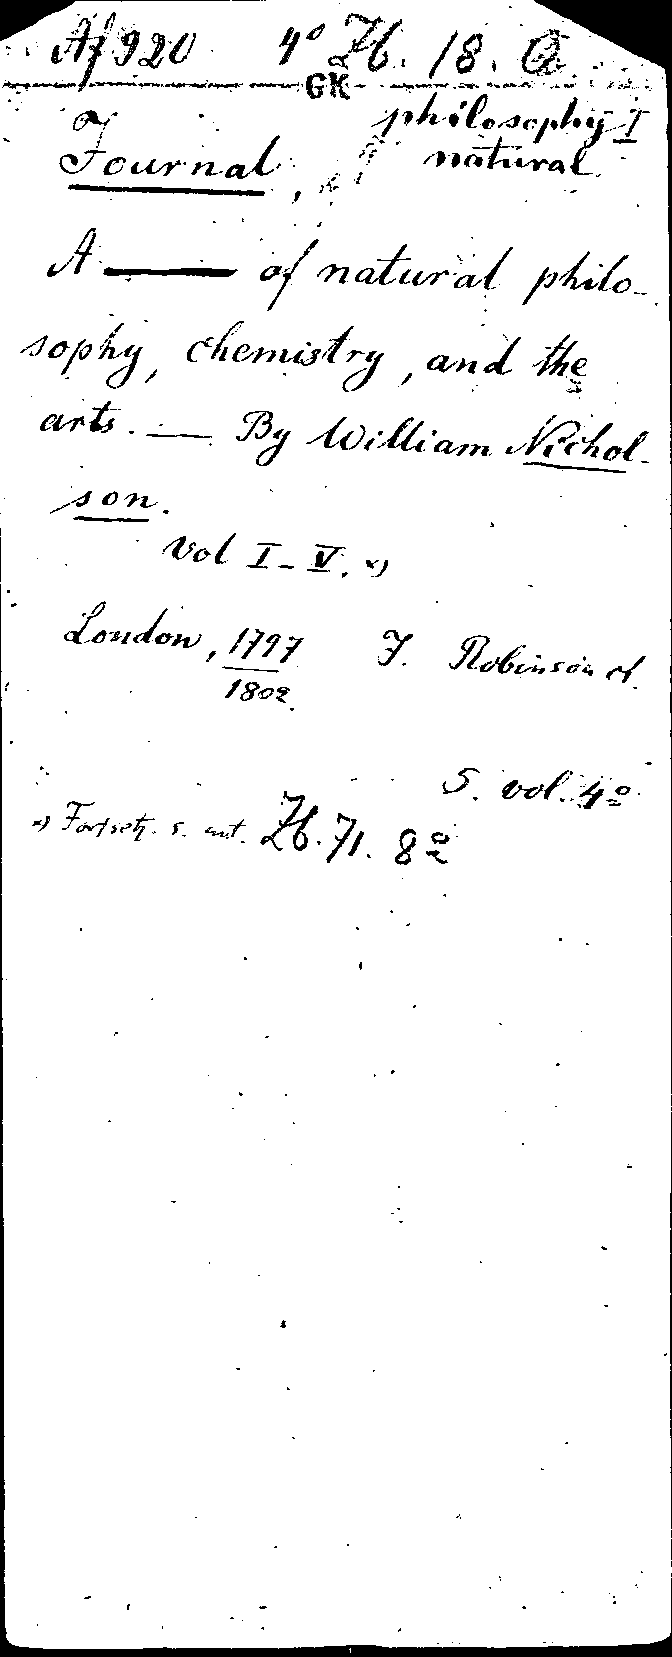 Af 920 4° Zb. 18. a
GK
philosophy I
Journal, natural
A —— of natural philo-
sophy, chemistry, and the
arts. — By William Nichol-
son.
vol I-V. x)
London, 1797 J. Robinson
1802
5. vol. 4°
x) Fortsetz. s. unt. Zb. 71. 8°